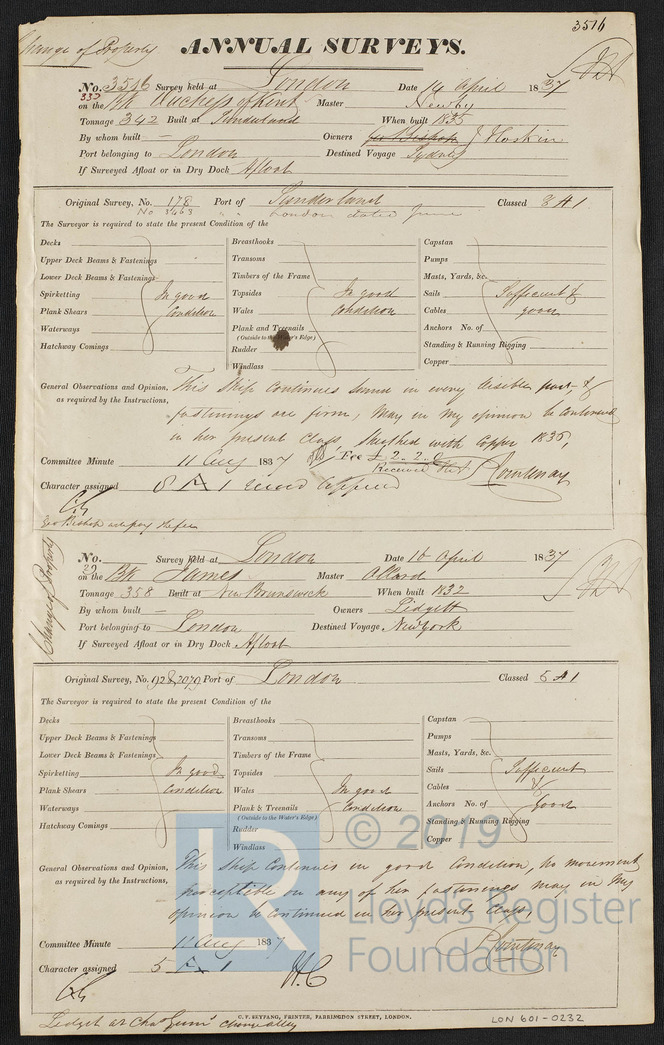 3516
Change of Property
ANNUAL SURVEYS.
No. 3516 Survey held at London Date 14 April 1837
332 on the Bk Duchess of Kent Master Newby
Tonnage 342 Built at Sunderland When built 1835
By whom built — Owners Geo Bishop J Hoskin
Port belonging to London Destined Voyage Sydney
If Surveyed Afloat or in Dry Dock Afloat
Original Survey, No. 178 Port of Sunderland Classed 8 A 1
No 3463 " " London dated June
The Surveyor is required to state the present Condition of the
Decks Breasthooks Capstan
Upper Deck Beams & Fastenings Transoms Pumps
Lower Deck Beams & Fastenings Timbers of the Frame Masts, Yards, &c.
Spirketting In good Topsides In good Sails Sufficient &
Plank Shears Condition Wales Condition Cables good
Waterways Plank and Treenails Anchors No. of
(Outside to the Water's Edge)
Hatchway Comings Rudder Standing & Running Rigging
Windlass Copper
General Observations and Opinion, This Ship Continues sound in every visible part, &
as required by the Instructions, fastenings are firm, May in my opinion be Continued
in her present Class, Sheathed with Copper 1835,
Committee Minute 11 Aug 1837 Fee £ 2..2..0
Received Courtenay
Character assigned 8 A 1
Geo Bishop will pay the fee
Change of Property
No. Survey held at London Date 10 April 1837
29 on the Bk James Master Ollard
Tonnage 358 Built at New Brunswick When built 1832
By whom built — Owners Lidgett
Port belonging to London Destined Voyage New York
If Surveyed Afloat or in Dry Dock Afloat
Original Survey, No. 928, 2079 Port of London Classed 5 A 1
The Surveyor is required to state the present Condition of the
Decks Breasthooks Capstan
Upper Deck Beams & Fastenings Transoms Pumps
Lower Deck Beams & Fastenings Timbers of the Frame Masts, Yards, &c.
Spirketting In good Topsides Sails Sufficient
Plank Shears Condition Wales In good Cables &
Waterways Plank & Treenails Condition Anchors No. of Good
(Outside to the Water's Edge)
Hatchway Comings Rudder Standing & Running Rigging
Windlass Copper
© 2019
Lloyd's Register
Foundation
General Observations and Opinion, This Ship Continues in good Condition, no movement
as required by the Instructions, perceptible on any of her fastenings may in my
opinion be Continued in her present Class,
Courtenay
Committee Minute 11 Aug 1837
Character assigned 5 A 1
C. F. SEYFANG, PRINTER, FARRINGDON STREET, LONDON.
LON 601-0232